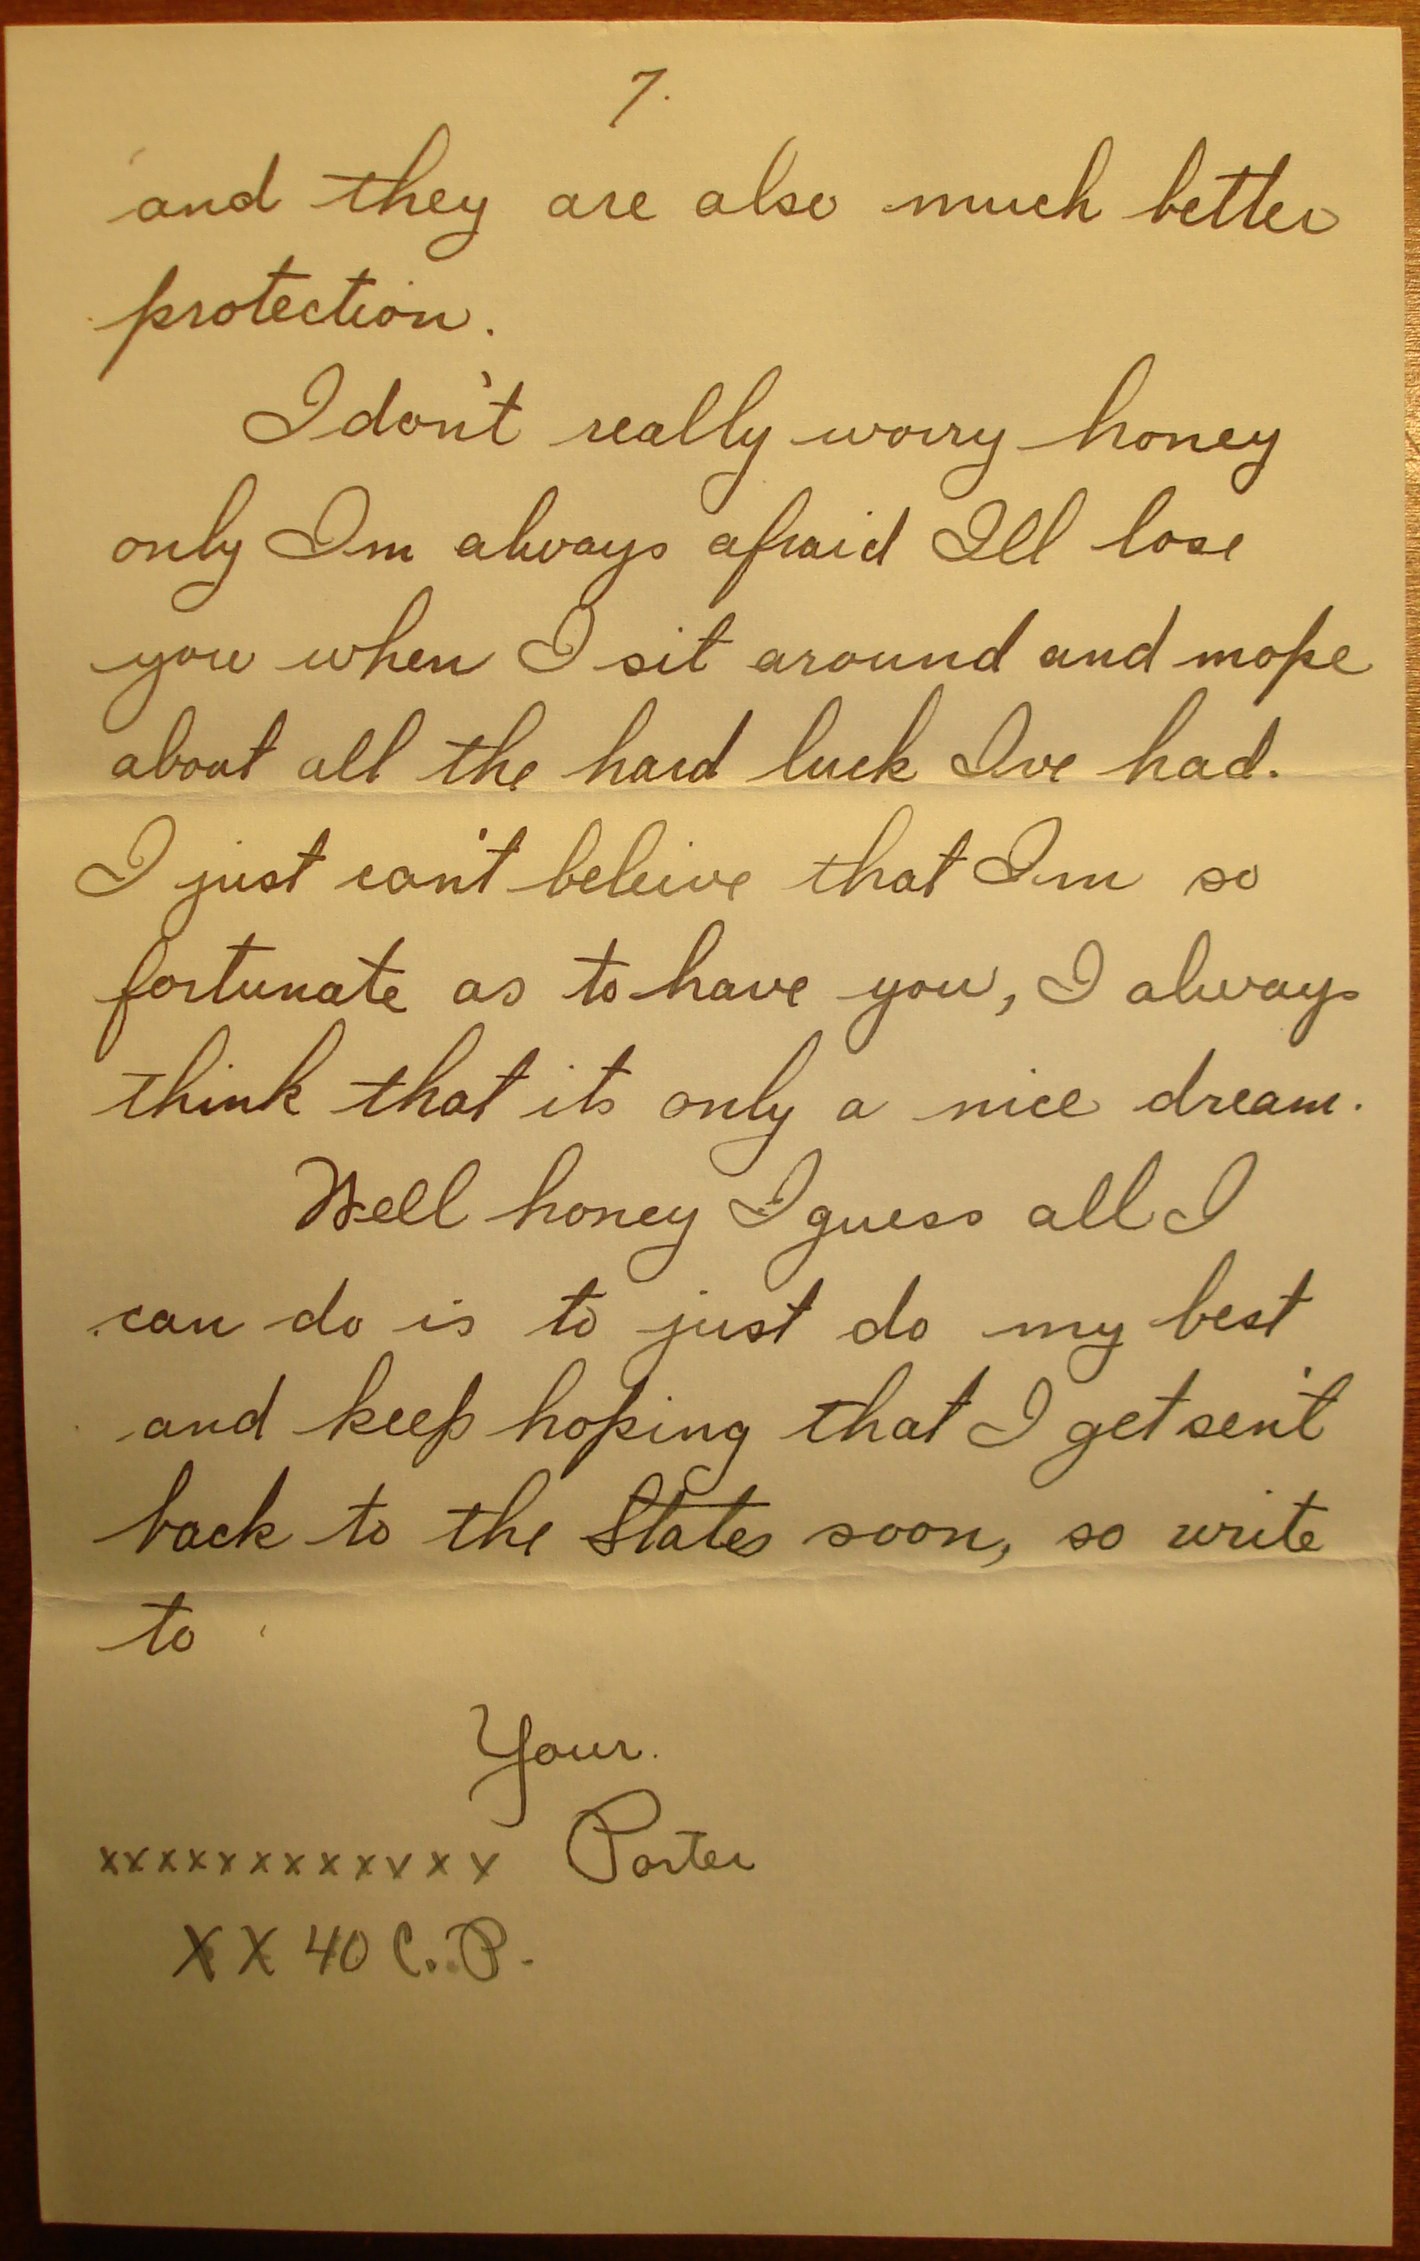 7.
and they are also much better
protection.
I don't really worry honey
only Im always afraid Ill lose
you when I sit around and mope
about all the hard luck Ive had.
I just can't beleive that Im so
fortunate as to have you, I always
think that its only a nice dream.
Well honey I guess all I
can do is to just do my best
and keep hoping that I get sen't
back to the States soon, so write
to
Your.
xxxxxxxxxxxxx Porter
XX 40 C.P.